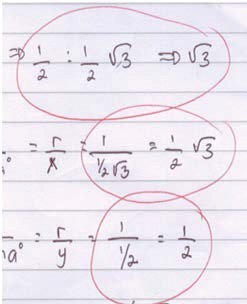 ⇒ 1/2 : 1/2 √3 ⇒ √3
° = r/x = 1/(1/2 √3) = 1/2 √3
a° = r/y = 1/(1/2) = 1/2